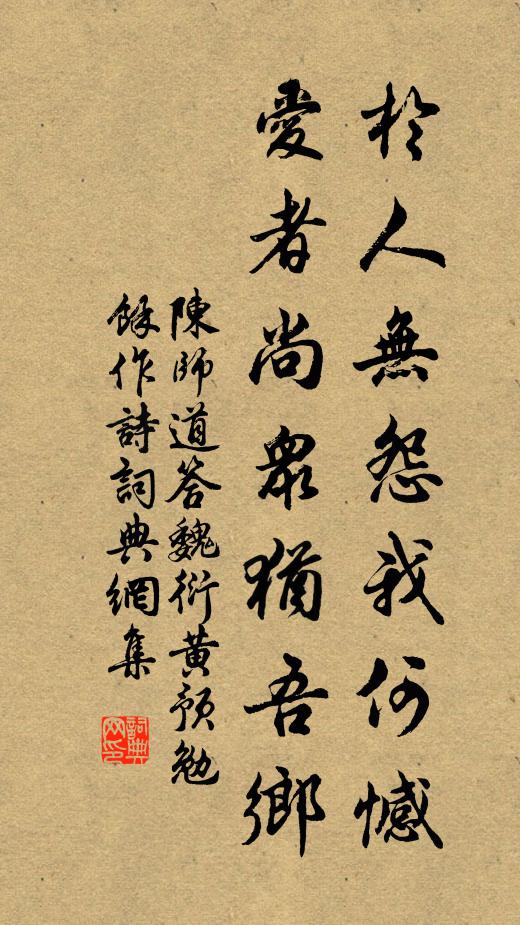 於人無怨我何憾
愛者尚衆猶吾鄉
陳師道答魏衍黄預勉
餘作詩詞典網集
詞典
网印